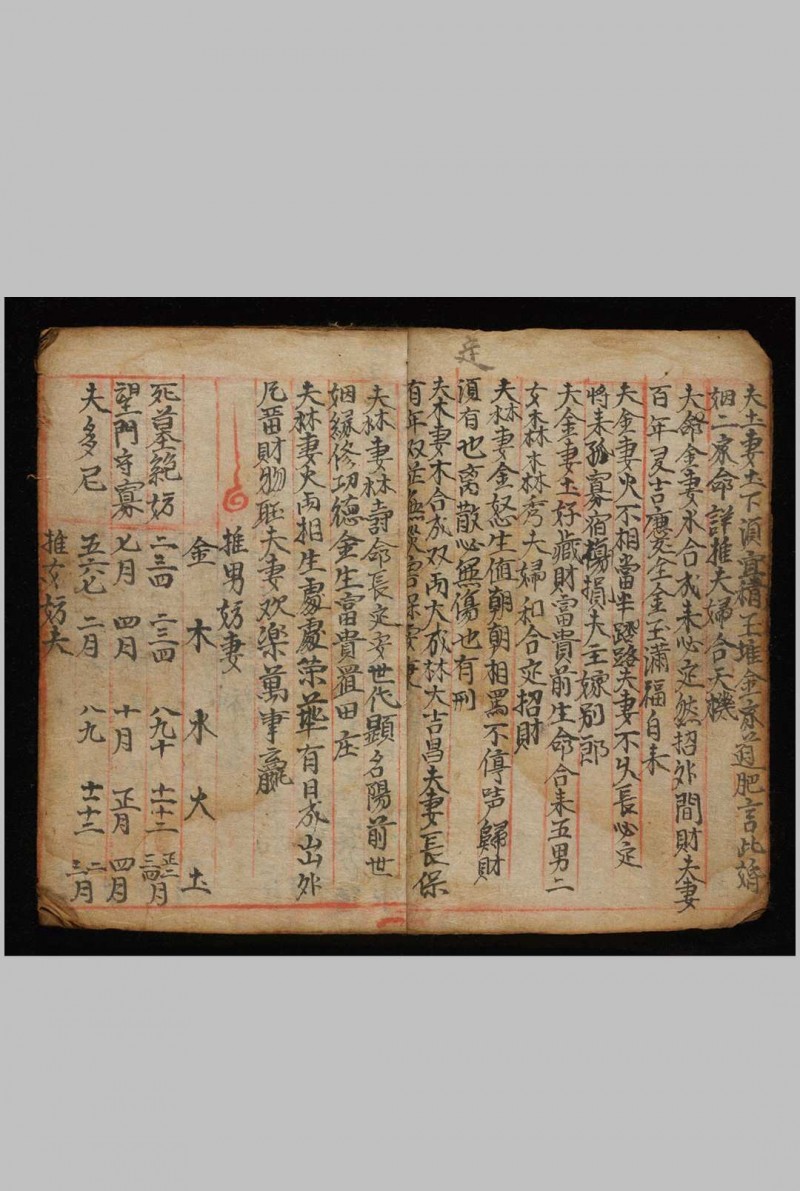 夫土妻土下須宜積玉堆金齊肥言此婚
姻二家命詳推夫婦合天機
夫命金妻水合成未必定然招外間財夫妻
百年灵吉慶金玉滿福自來
夫金妻火不相當半路夫妻不久長必定
將来孤寡宿傷損夫主嫁別郎
夫金妻土好藏財富貴前生命合来五男二
女森林木林秀夫婦和合定招財
夫林妻金怒生值朝朝相罵不停声歸財
須有也离散必無傷也有刑
夫木妻木合成双兩大成林大吉昌夫妻長保
有年双
夫林妻林壽命長定妻世代顯名陽前世
姻緣修功德金生富貴置田庄
夫林妻火兩相生處處荣華有日成出外
凡啚財物旺夫妻欢楽萬事贏
推男妨妻
金 木 水 火 土
死墓絕妨 二三四 二三四 八九十 十一十二 正二三四月
望門守寡 七月 四月 十月 正月 四月
夫多厄 五六七 二月 八九 十一十二 二三月
推女妨夫